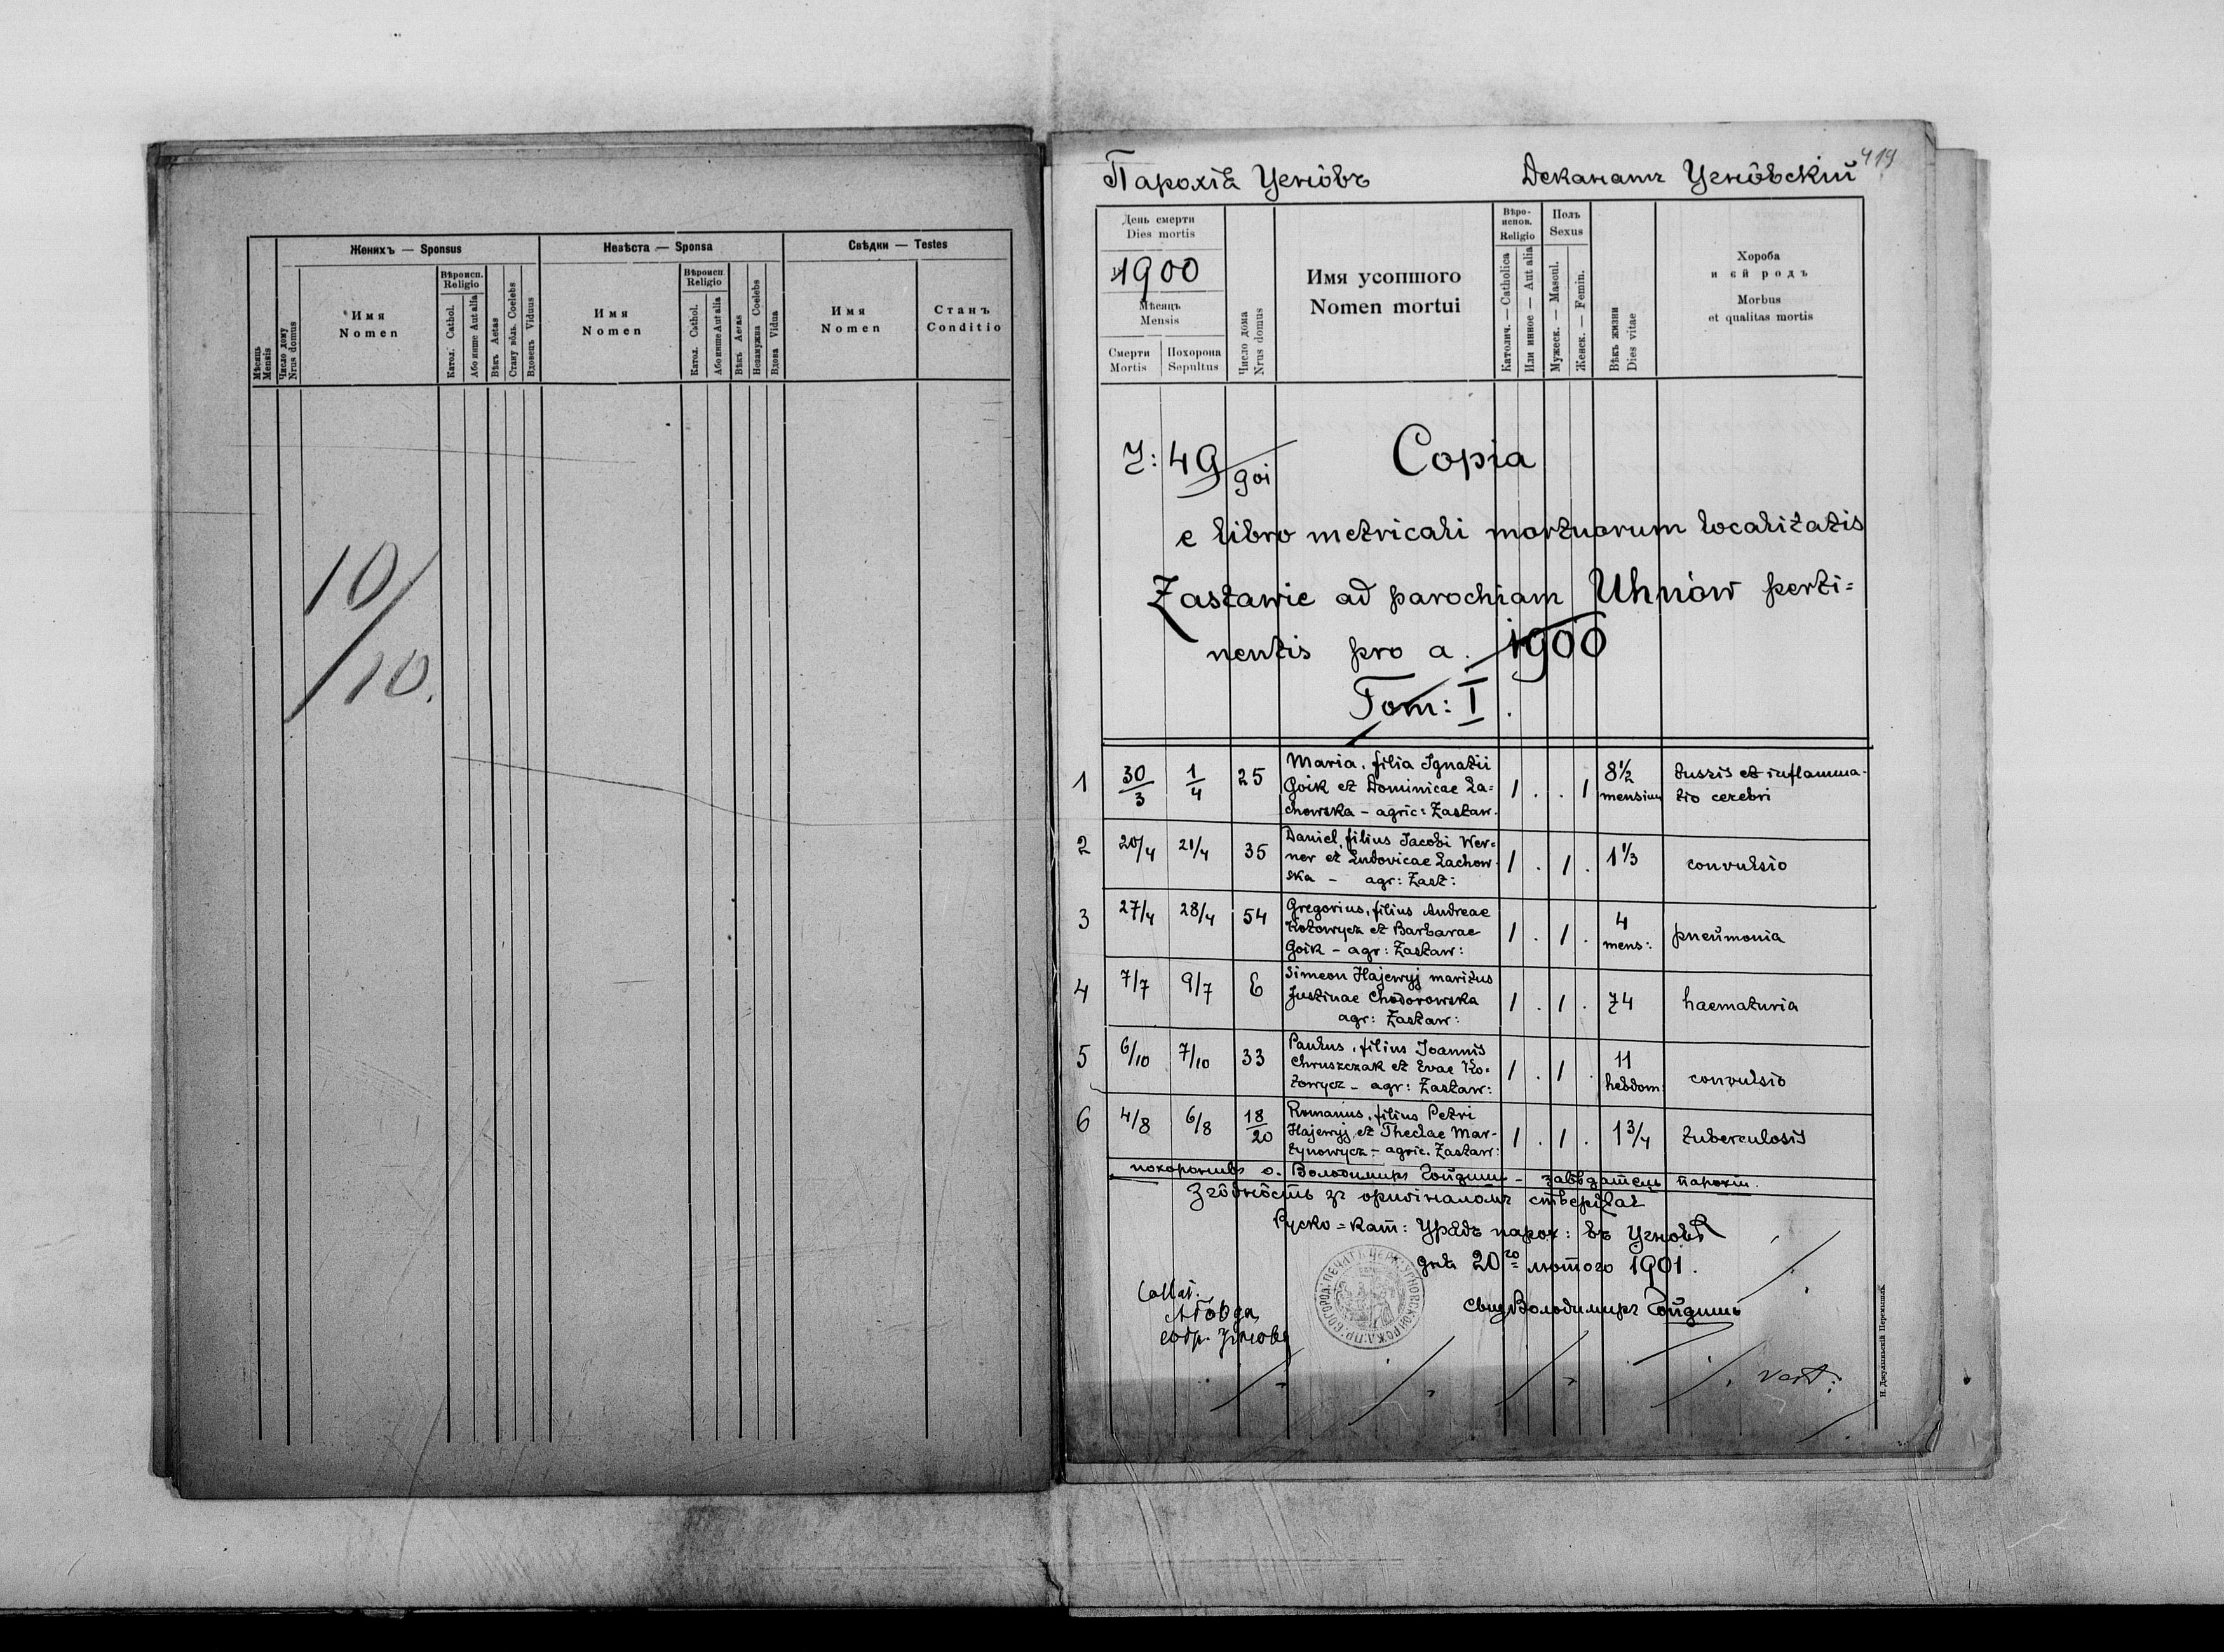 Женихъ — Sponsus
Невѣста — Sponsa
Свѣдки — Testes
Мѣсяць
Mensis
Число дому
Nrus domus
Имя
Nomen
Вѣроисп.
Religio
Катол. Cathol.
Або инше Aut alia
Вѣкъ Aetas
Стану вôльн. Coelebs
Вдовець Viduus
Имя
Nomen
Вѣроисп.
Religio
Катол. Cathol.
Або инше Aut alia
Вѣкъ Aetas
Незамужна Coelebs
Вдова Vidua
Имя
Nomen
Станъ
Conditio
10/10.
419
Парохія Угнôвъ Деканатъ Угнôвскій
День смерти
Dies mortis
1900
Мѣсяцъ
Mensis
Смерти
Mortis
Похорона
Sepultus
Число дома
Nrus domus
Имя усопшого
Nomen mortui
Вѣро-
испов.
Religio
Католич. — Catholica
Или инное — Aut alia
Полъ
Sexus
Мужеск. — Mascul.
Женск. — Femin.
Вѣкъ жизни
Dies vitae
Хороба
и ей родъ
Morbus
et qualitas mortis
Ч: 49/901
Copia
e libro metricali mortuorum localitatis
Zastawie ad parochiam Uhnów perti=
nentis pro a. 1900
Tom: I.
1 30/3 1/4 25 Maria, filia Ignatii
Goik et Dominicae La=
chowska – agric: Zastaw. 1 . . 1 8½
mensium tussis et inflamma-
tio cerebri
2 20/4 21/4 35 Daniel, filius Jacobi Wer=
ner et Ludovicae Lachow
ska – agr: Zast: 1 . 1 . 1⅓ convulsio
3 27/4 28/4 54 Gregorius, filius Andreae
Kotowycz et Barbarae
Goik – agr: Zastaw: 1 . 1 . 4
mens: pneumonia
4 7/7 9/7 6 Simeon Hajewyj maritus
Justinae Chodorowska
agr: Zastaw: 1 . 1 . 74 haematuria
5 6/10 7/10 33 Paulus, filius Joannis
Chruszczak et Evae Ko-
towycz – agr: Zastaw: 1 . 1 . 11
hebdom: convulsio
6 4/8 6/8 18/20 Romanus, filius Petri
Hajewyj et Theclae Mar-
tynowycz – agric. Zastaw: 1 . 1 . 1¾ tuberculosis
похоронивъ о. Володимиръ – завѣдатель парохіи.
Згôдность зъ оригіналомъ ствердxae
Руско=кат: Урядъ парох: въ Угновѣ
дня 20го лютого 1901.
свящ Володимиръ
vert:
Н. Джулыньскій Перемышль